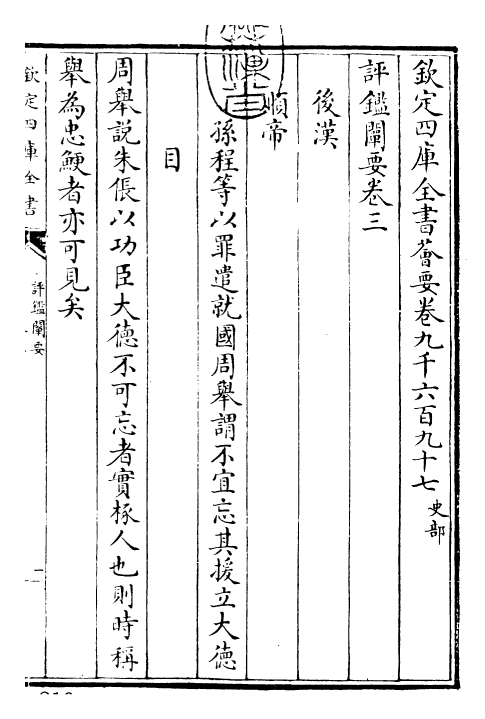 欽定四庫全書薈要卷九千六百九十七 史部
評鑑闡要卷三
後漢
順帝
孫程等以罪遣就國周舉謂不宜忘其援立大德
目
周舉說朱倀以功臣大德不可忘者實椓人也則時稱
舉為忠鯁者亦可見矣
欽定四庫全書
評鑑闡要
一